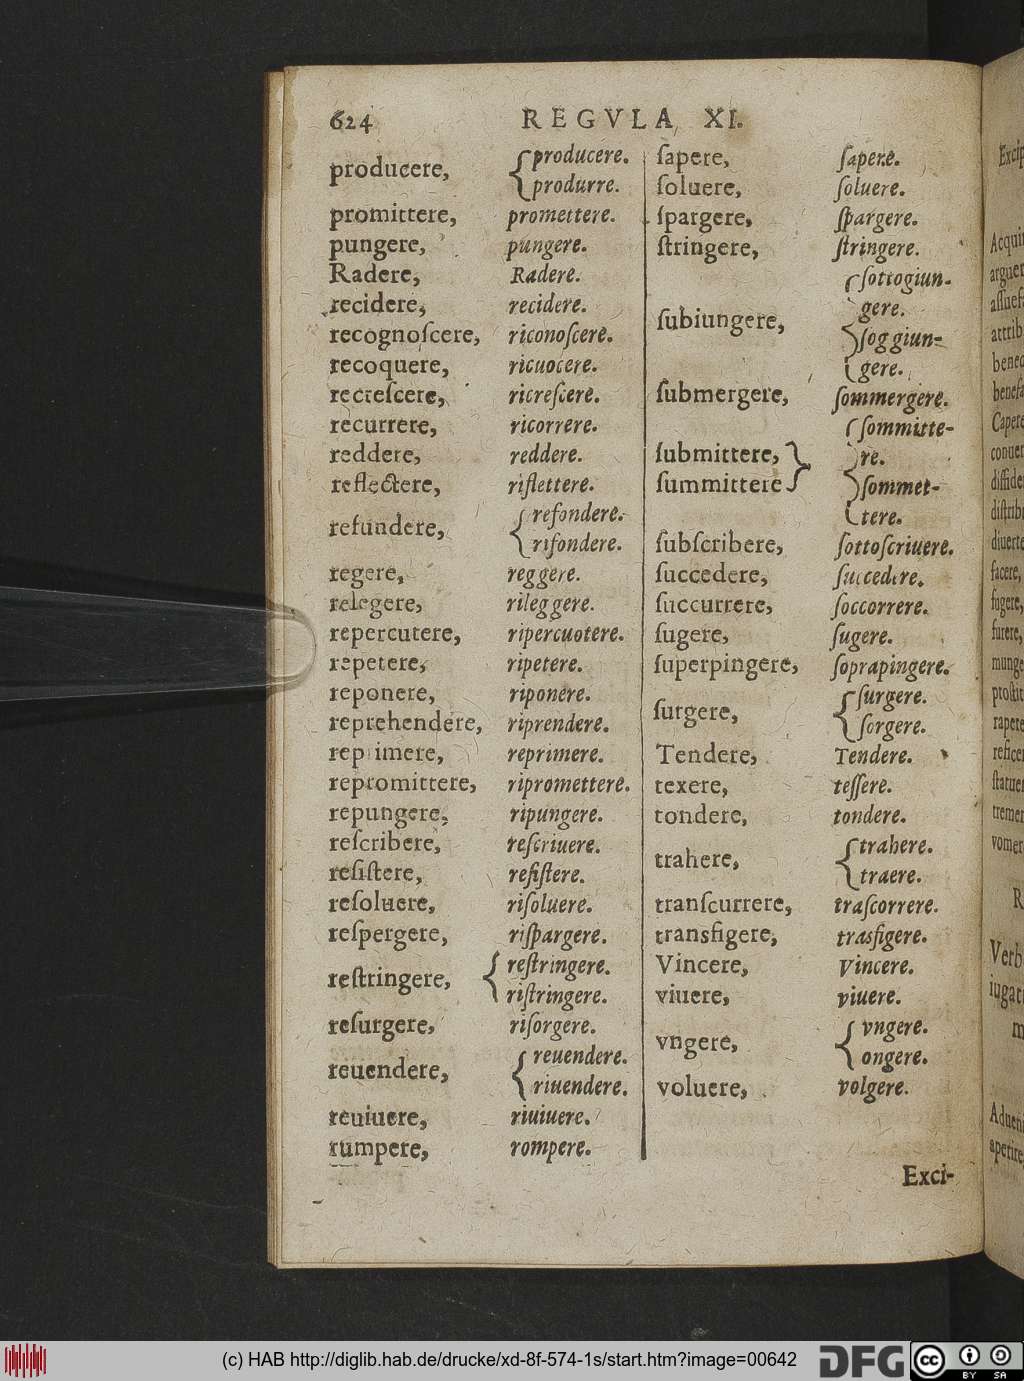 624 REGVLA XI.
producere, {producere.
{produrre.
promittere, promettere.
pungere, pungere.
Radere, Radere.
recidere, recidere.
recognoſcere, riconoſcere.
recoquere, ricuocere.
recreſcere, ricreſcere.
recurrere, ricorrere.
reddere, reddere.
reflectere, riflettere.
refundere, {refondere.
{rifondere.
regere, reggere.
relegere, rileggere.
repercutere, ripercuotere.
repetere, ripetere.
reponere, riponere.
reprehendere, riprendere.
reprimere, reprimere.
repromittere, ripromettere.
repungere, ripungere.
reſcribere, reſcriuere.
reſiſtere, reſiſtere.
reſoluere, riſoluere.
reſpergere, riſpargere.
reſtringere, {reſtringere.
{riſtringere.
reſurgere, riſorgere.
reuendere, {reuendere.
{riuendere.
reuiuere, riuiuere.
rumpere, rompere.
ſapere, ſapere.
ſoluere, ſoluere.
ſpargere, ſpargere.
ſtringere, ſtringere.
ſubiungere, {ſottogiun-
gere.
ſoggiun-
gere.
ſubmergere, ſommergere.
{ſommitte-
ſubmittere,} re.
ſummittere} ſommet-
tere.
ſubſcribere, ſottoſcriuere.
ſuccedere, ſuccedere.
ſuccurrere, ſoccorrere.
ſugere, ſugere.
ſuperpingere, ſoprapingere.
ſurgere, {ſurgere.
{ſorgere.
Tendere, Tendere.
texere, teſſere.
tondere, tondere.
trahere, {trahere.
{traere.
tranſcurrere, traſcorrere.
transfigere, trasfigere.
Vincere, Vincere.
viuere, viuere.
vngere, {vngere.
{ongere.
voluere, volgere.
Exci-
(c) HAB http://diglib.hab.de/drucke/xd-8f-574-1s/start.htm?image=00642
DFG
cc BY SA